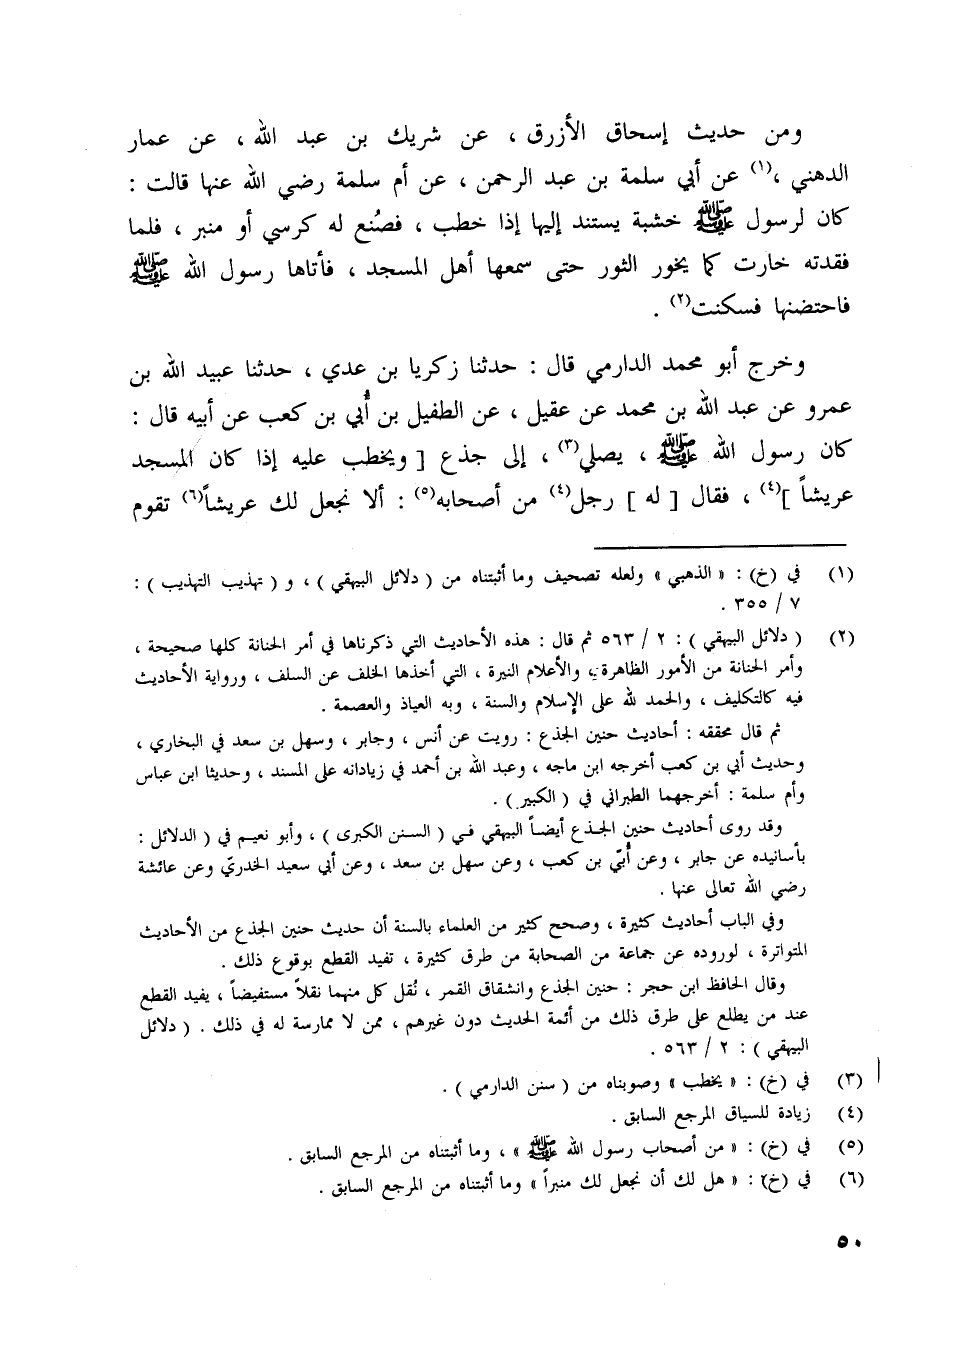 ومن حديث إسحاق الأزرق ، عن شريك بن عبد الله ، عن عمار
الدهني ،(١) عن أبي سلمة بن عبد الرحمن ، عن أم سلمة رضي الله عنها قالت :
كان لرسول ﷺ خشبة يستند إليها إذا خطب ، فصُنع له كرسي أو منبر ، فلما
فقدته خارت كما يخور الثور حتى سمعها أهل المسجد ، فأتاها رسول الله ﷺ
فاحتضنها فسكنت(٢) .
وخرج أبو محمد الدارمي قال : حدثنا زكريا بن عدي ، حدثنا عبيد الله بن
عمرو عن عبد الله بن محمد عن عقيل ، عن الطفيل بن أُبي بن كعب عن أبيه قال :
كان رسول الله ﷺ ، يصلي(٣) ، إلى جذع [ ويخطب عليه إذا كان المسجد
عريشاً ](٤) ، فقال [ له ] رجل(٤) من أصحابه(٥) : ألا نجعل لك عريشاً(٦) تقوم
(١) في (خ) : « الذهبي » ولعله تصحيف وما أثبتناه من ( دلائل البيهقي ) ، و ( تهذيب التهذيب ) :
٧ / ٣٥٥ .
(٢) ( دلائل البيهقي ) : ٢ / ٥٦٣ ثم قال : هذه الأحاديث التي ذكرناها في أمر الحنانة كلها صحيحة ،
وأمر الحنانة من الأمور الظاهرة ، والأعلام النيرة ، التي أخذها الخلف عن السلف ، ورواية الأحاديث
فيه كالتكليف ، والحمد لله على الإسلام والسنة ، وبه العياذ والعصمة .
ثم قال محققه : أحاديث حنين الجذع : رويت عن أنس ، وجابر ، وسهل بن سعد في البخاري ،
وحديث أبي بن كعب أخرجه ابن ماجه ، وعبد الله بن أحمد في زياداته على المسند ، وحديثا ابن عباس
وأم سلمة : أخرجهما الطبراني في ( الكبير ) .
وقد روى أحاديث حنين الجذع أيضاً البيهقي في ( السنن الكبرى ) ، وأبو نعيم في ( الدلائل :
بأسانيده عن جابر ، وعن أُبيّ بن كعب ، وعن سهل بن سعد ، وعن أبي سعيد الخدريّ وعن عائشة
رضي الله تعالى عنها .
وفي الباب أحاديث كثيرة ، وصحح كثير من العلماء بالسنة أن حديث حنين الجذع من الأحاديث
المتواترة ، لوروده عن جماعة من الصحابة من طرق كثيرة ، تفيد القطع بوقوع ذلك .
وقال الحافظ ابن حجر : حنين الجذع وانشقاق القمر ، نُقل كل منهما نقلاً مستفيضاً ، يفيد القطع
عند من يطلع على طرق ذلك من أئمة الحديث دون غيرهم ، ممن لا ممارسة له في ذلك . ( دلائل
البيهقي ) : ٢ / ٥٦٣ .
(٣) في (خ) : « يخطب » وصوبناه من ( سنن الدارمي ) .
(٤) زيادة للسياق المرجع السابق .
(٥) في (خ) : « من أصحاب رسول الله ﷺ » ، وما أثبتناه من المرجع السابق .
(٦) في (خ) : « هل لك أن نجعل لك منبراً » وما أثبتناه من المرجع السابق .
٥٠